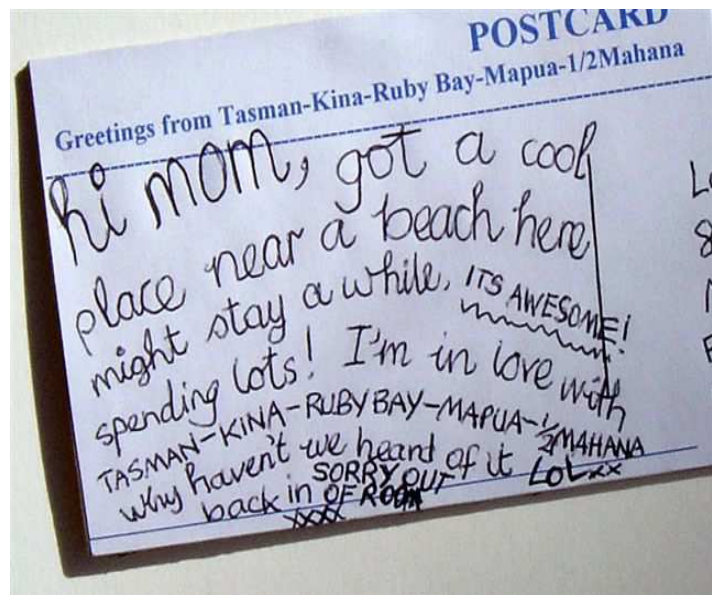 POSTCARD
Greetings from Tasman-Kina-Ruby Bay-Mapua-1/2Mahana
hi mom, got a cool
place near a beach here
might stay a while. ITS AWESOME!
spending lots! I'm in love with
TASMAN-KINA-RUBY BAY-MAPUA-1/2MAHANA
why haven't we heard of it LOL xx
back in SORRY OUT
OF ROOM
xxxx